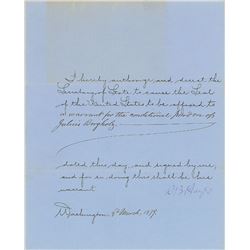 I hereby authorize and direct the
Secretary of State to cause the Seal
of the United States to be affixed to
a warrant for the conditional pardon of
Julius Borgholz
dated this day, and signed by me,
and for so doing this shall be his
warrant
R B Hayes
Washington, 8th March, 187